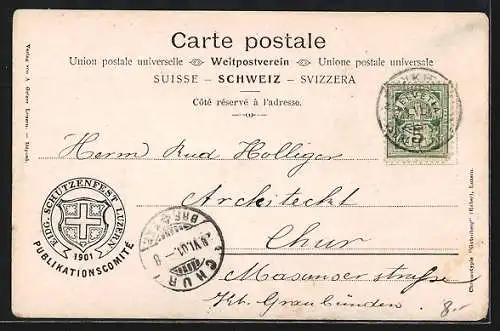 Carte postale
Union postale universelle Weltpostverein Unione postale universale
SUISSE – SCHWEIZ – SVIZZERA
Côté réservé à l'adresse.
HELVETIA
5
Herrn Rud Holliger
Architeckt
Chur
Masanser strasse
Kt. Graubünden
8.-
EIDG. SCHÜTZENFEST LUZERN
1901
PUBLIKATIONSCOMITÉ
CHUR
Verlag von A. Luzern.
Luzern.